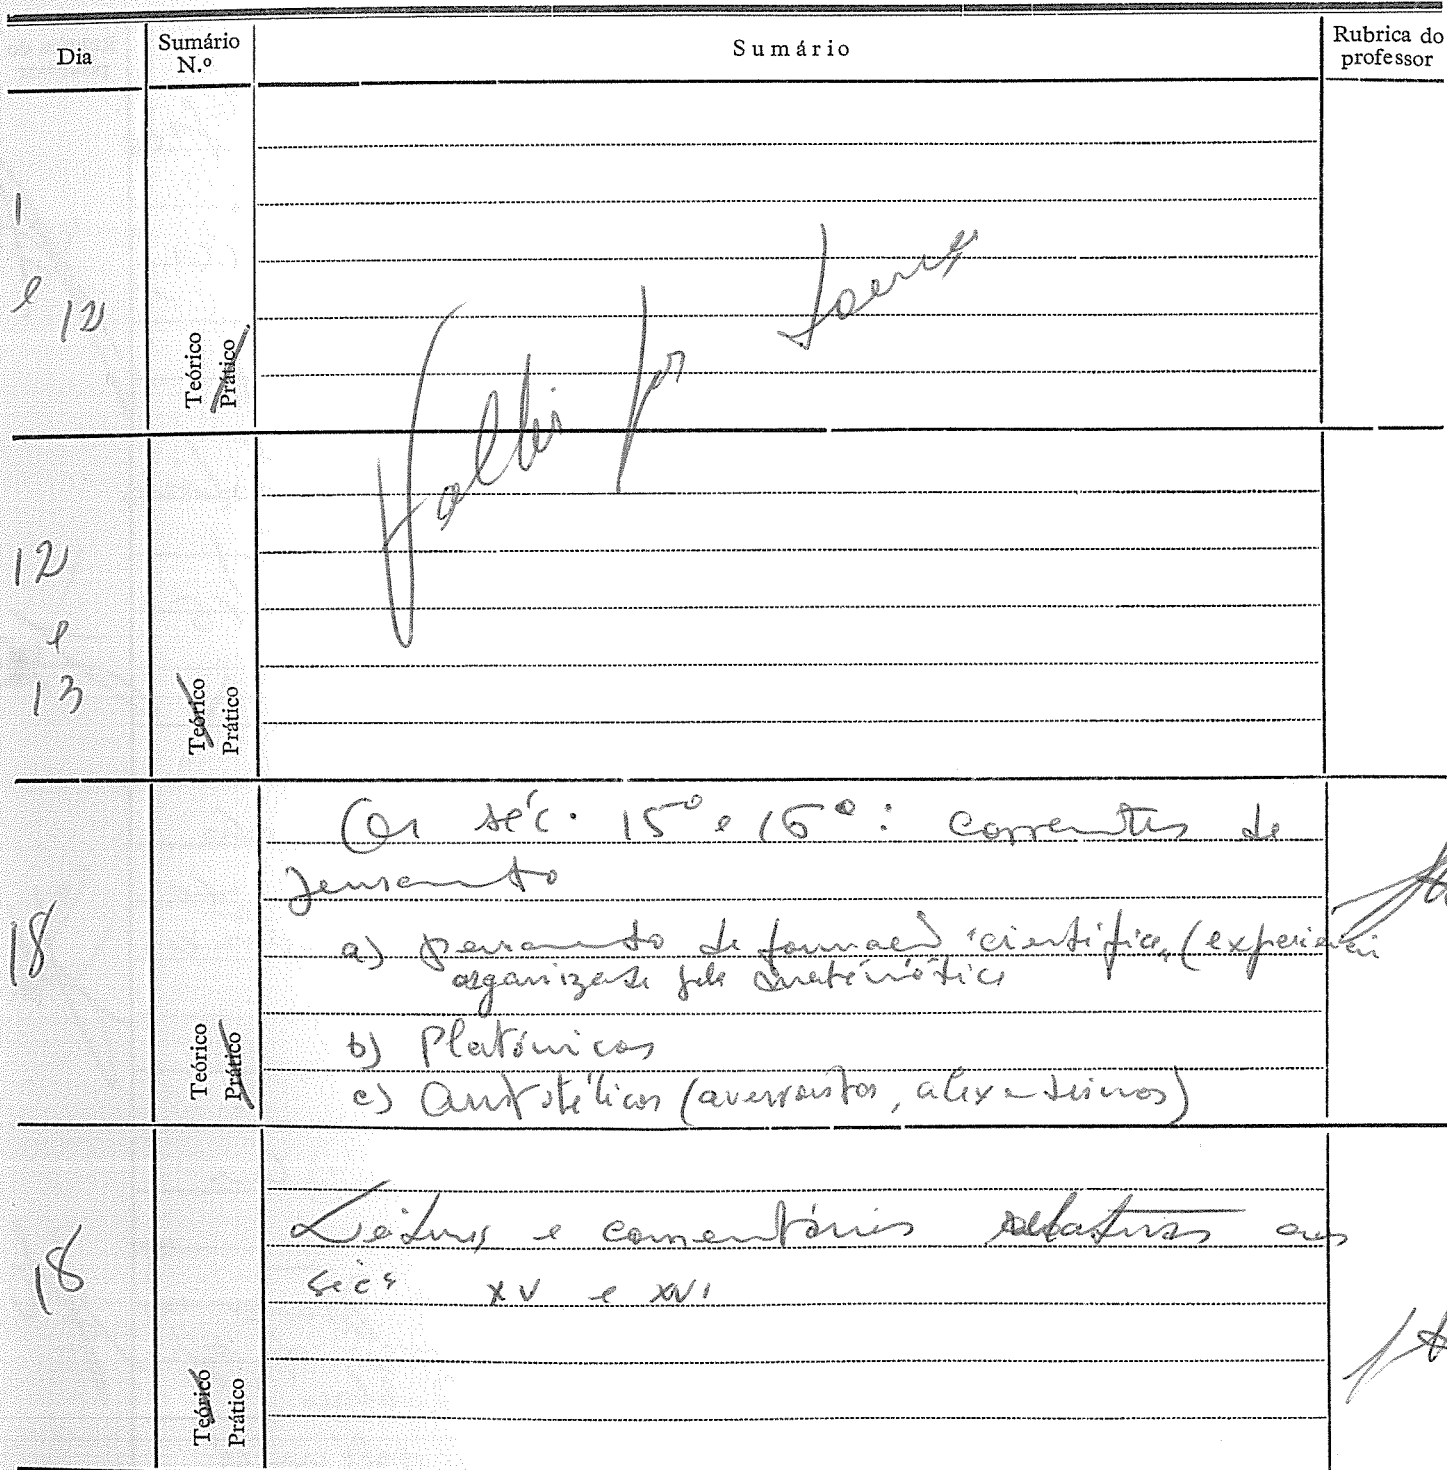 Dia
Sumário N.º
Sumário
Rubrica do professor
1
e 12
Teórico
Prático
Faltei por doença
12
e
13
Teórico
Prático
18
Os séc. 15º e 16º: correntes de
pensamento
a) pensamento de formação "científica" (experiência
organizada pela matemática
b) Platónicos
c) Aristotélicos (averroistas, alexandrinos)
Teórico
Prático
18
Leituras e comentários relativos aos
sécs XV e XVI
Teórico
Prático